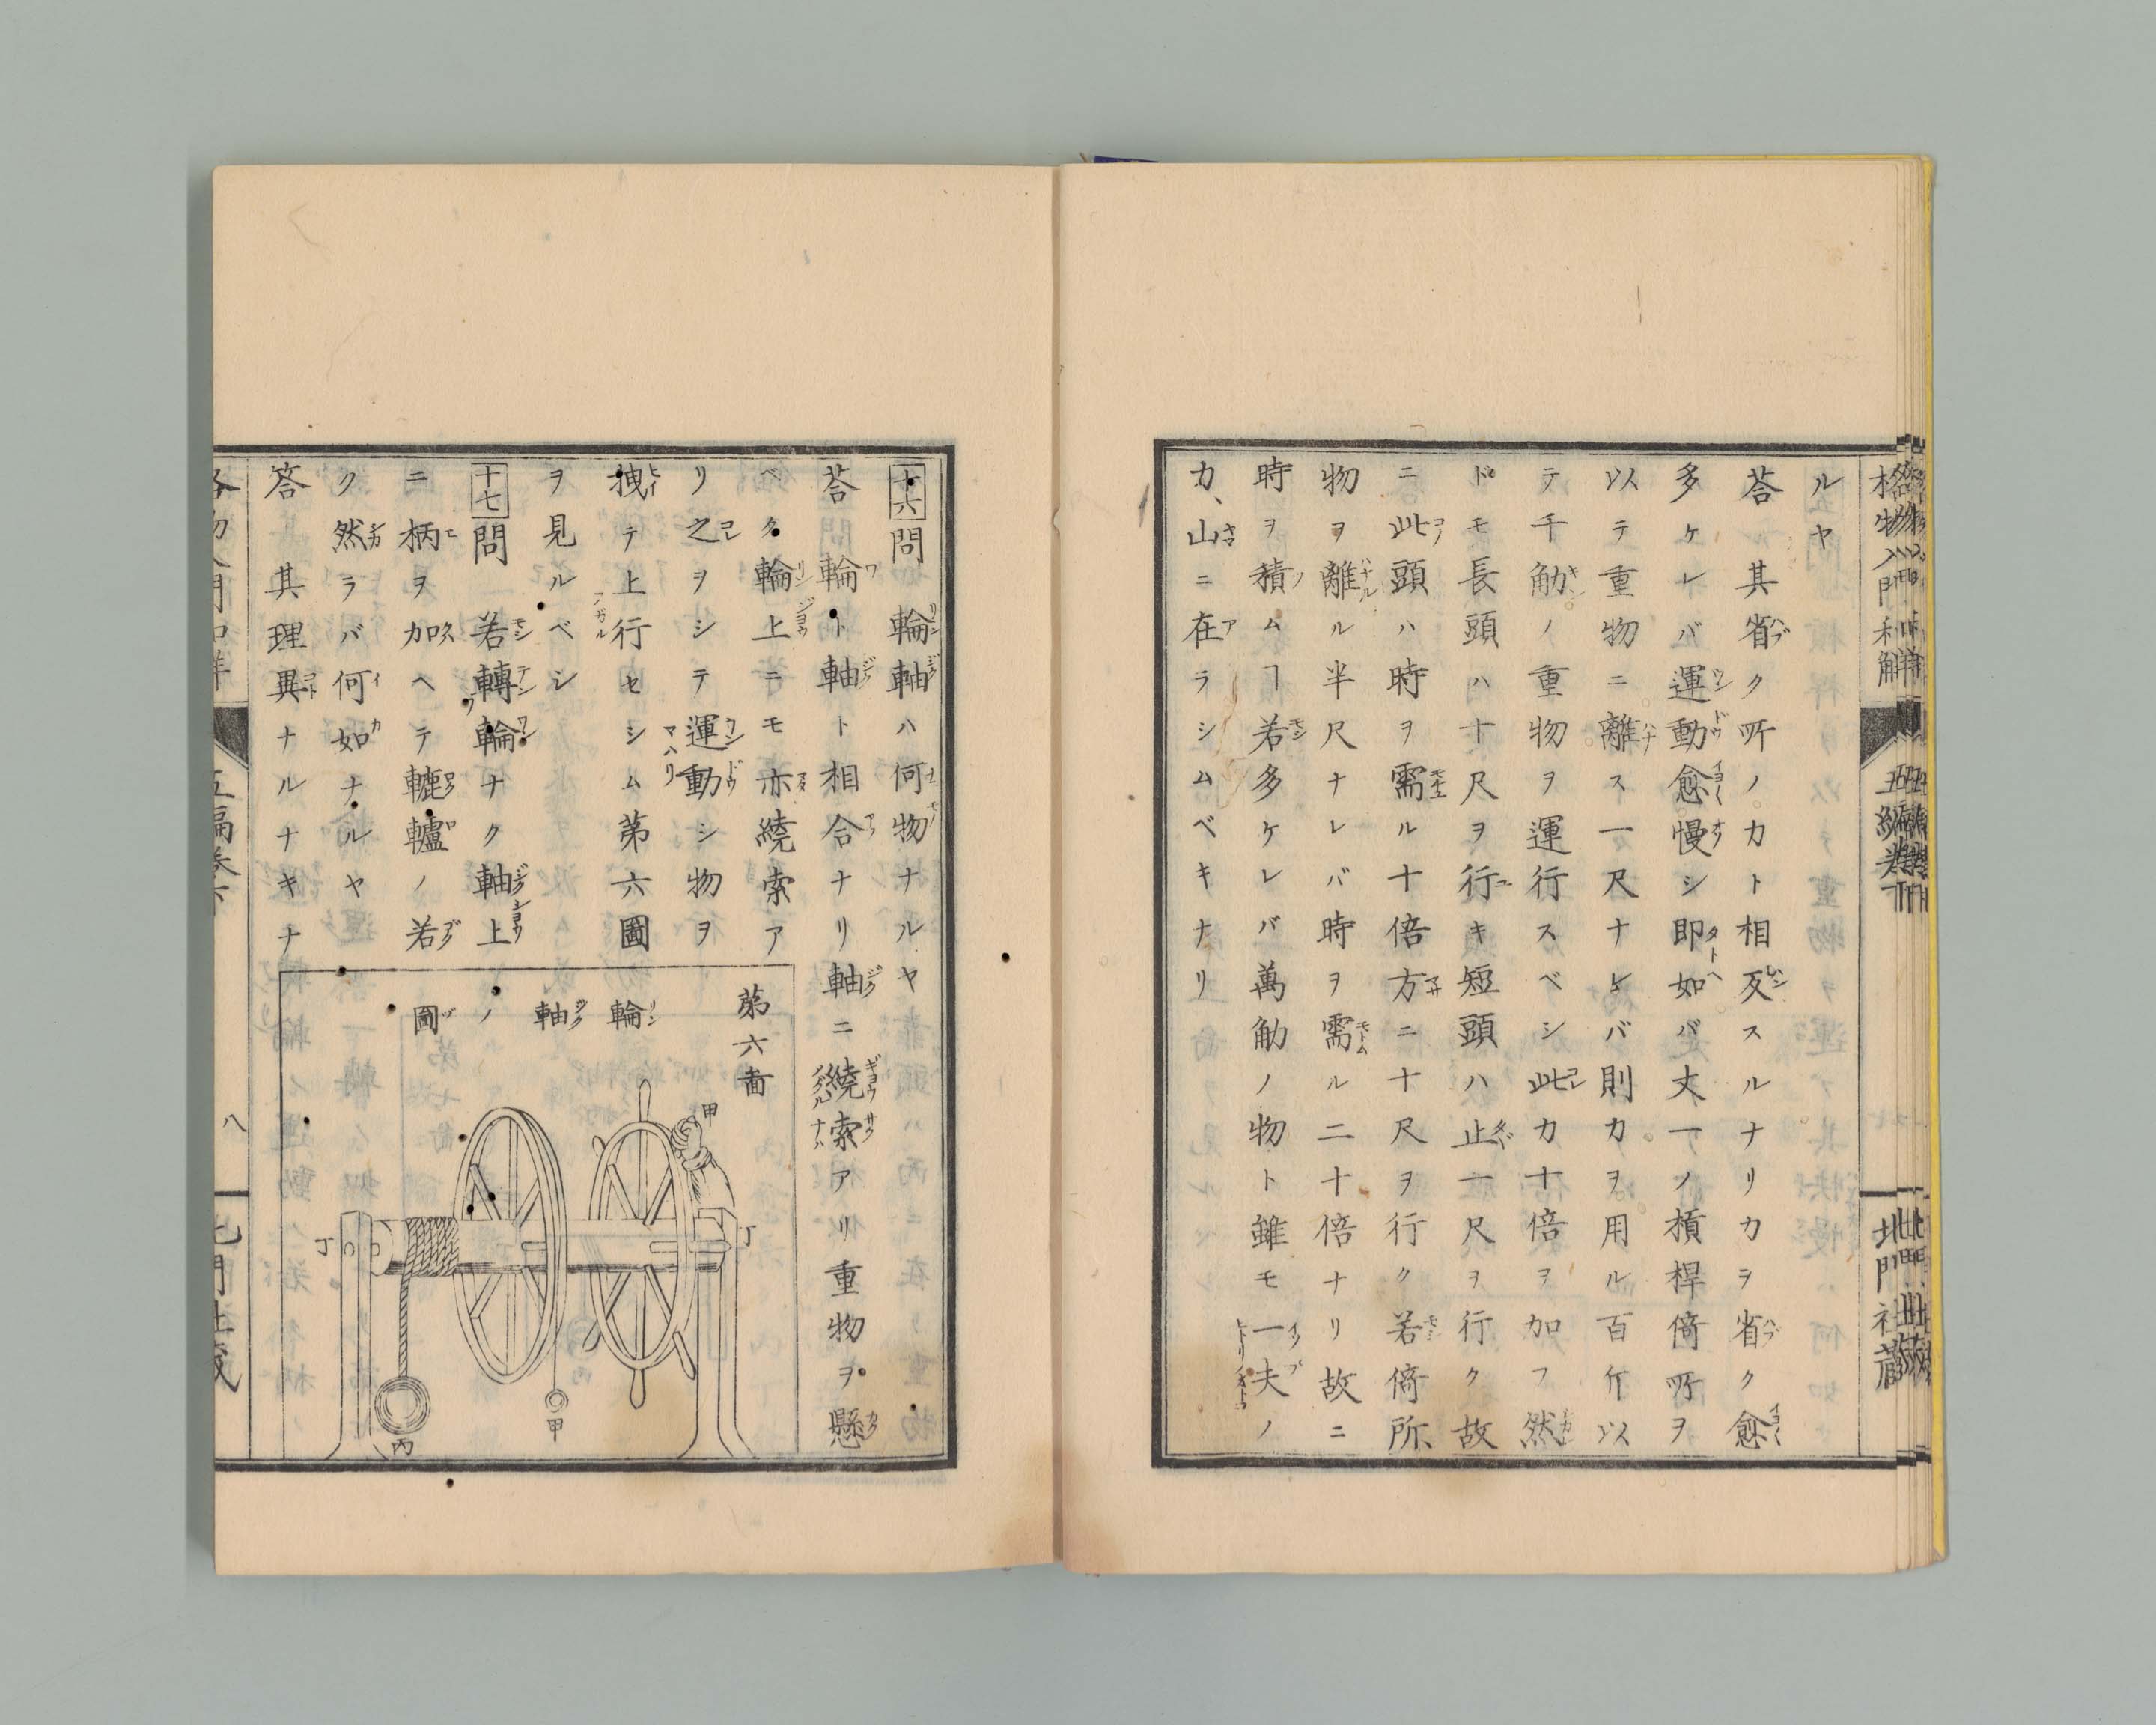 格物入門和解
五編卷下
北門社藏
ルヤ
荅其省ク所ノ力ト相反スルナリ力ヲ省ク愈
多ケレバ運動愈慢シ即如バ丈一ノ槓桿倚所ヲ
以テ重物ニ離ス一尺ナレバ則力ヲ用ル百斤以
テ千觔ノ重物ヲ運行スベシ此力十倍ヲ加フ然
ドモ長頭ハ十尺ヲ行キ短頭ハ止一尺ヲ行ク故
ニ此頭ハ時ヲ需ル十倍方ニ十尺ヲ行ク若倚所、
物ヲ離ル半尺ナレバ時ヲ需ル二十倍ナリ故ニ
時ヲ積ムヿ若多ケレバ萬觔ノ物ト雖モ一夫ノ
力、山ニ在ラシムベキナリ
十六問 輪軸ハ何物ナルヤ
荅 輪ト軸ト相合ナリ軸ニ繞索アリ重物ヲ懸
ベク輪上ニモ亦繞索ア
リ之ヲシテ運動シ物ヲ
拽テ上行セシム第六圖
ヲ見ルベシ
十七問 若轉輪ナク軸上
ニ柄ヲ加ヘテ轆轤ノ若
ク然ラバ何如ナルヤ
答 其理異ナルナキナ
第六啚
輪軸ノ圖
甲
丁
丁
甲
丙
八